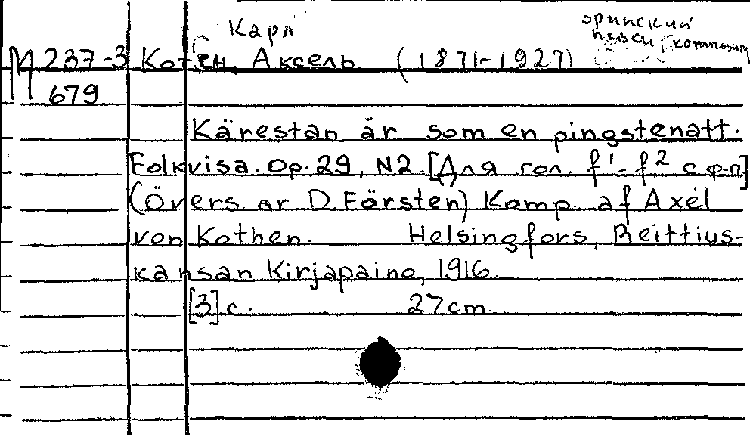 Карл
М 237-3 Котен, Аксель (1871-1927) певец, композитор
679
Kärestan är som en pingstenatt.
Folkvisa. Op. 29, N2. [Для гол. f¹-f² с ф-п]
(Övers. ar D. Färsten) Komp. af Axel
von Kothen. Helsingfors, Reittius-
kansan Kirjapaino, 1916.
[3] с. 27 cm